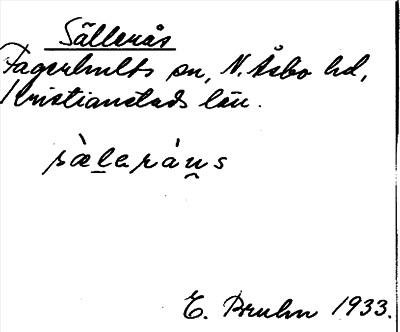 Sällerås
Fagerhults sn, N. Åsbo hd,
Kristianstads län.
sàl̲eráṋs
E. Bruhn 1933.